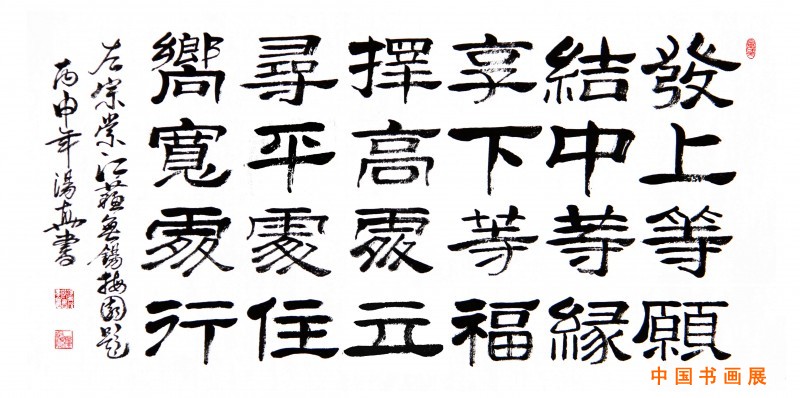 發上等願
結中等緣
享下等福
擇高處立
尋平處住
嚮寬處行
左宗棠江蘇無錫梅園題
丙申年湯真書
中国书画展